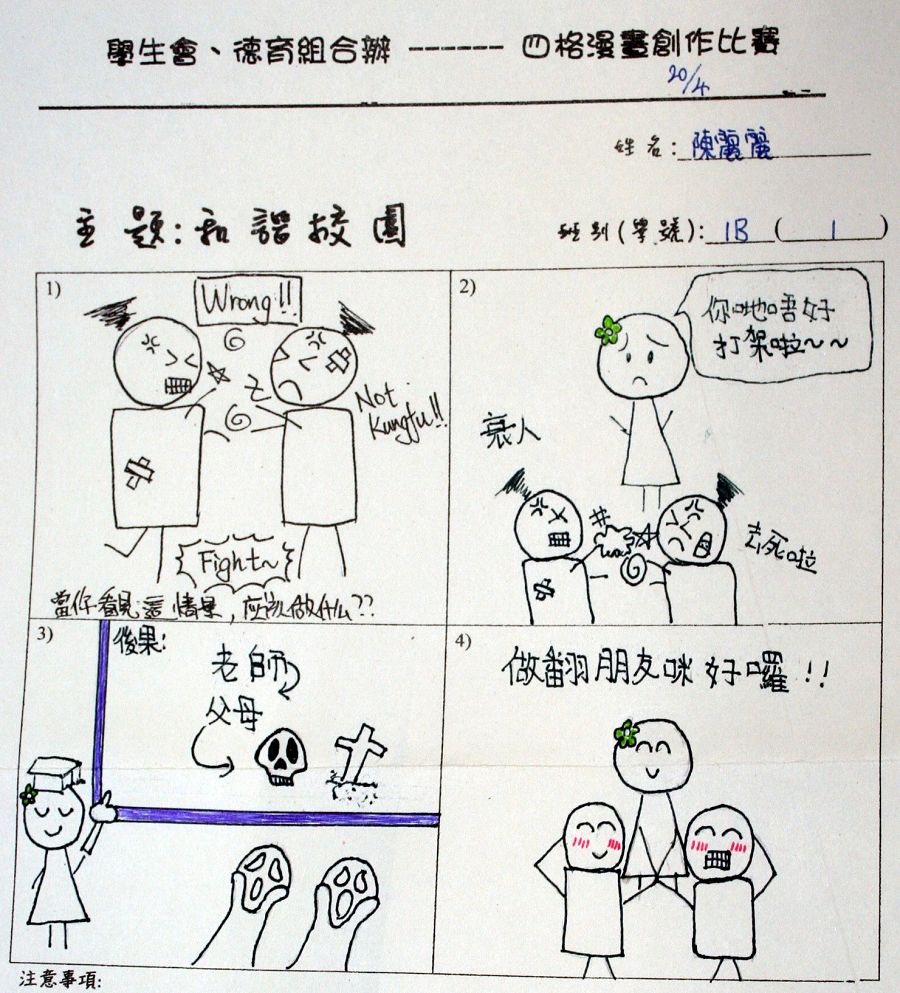 學生會、德育組合辦 ------ 四格漫畫創作比賽
20/4
姓名: 陳麗麗
主題: 和諧校園
班別(學號): 1B ( 1 )
1)
Wrong!!
Not
Kungfu!!
Fight~
當你看見這情景，應該做什么??
2)
你哋唔好
打架啦~~
衰人
去死啦
3)
後果:
老師
父母
4)
做翻朋友咪好囉!!
注意事項: